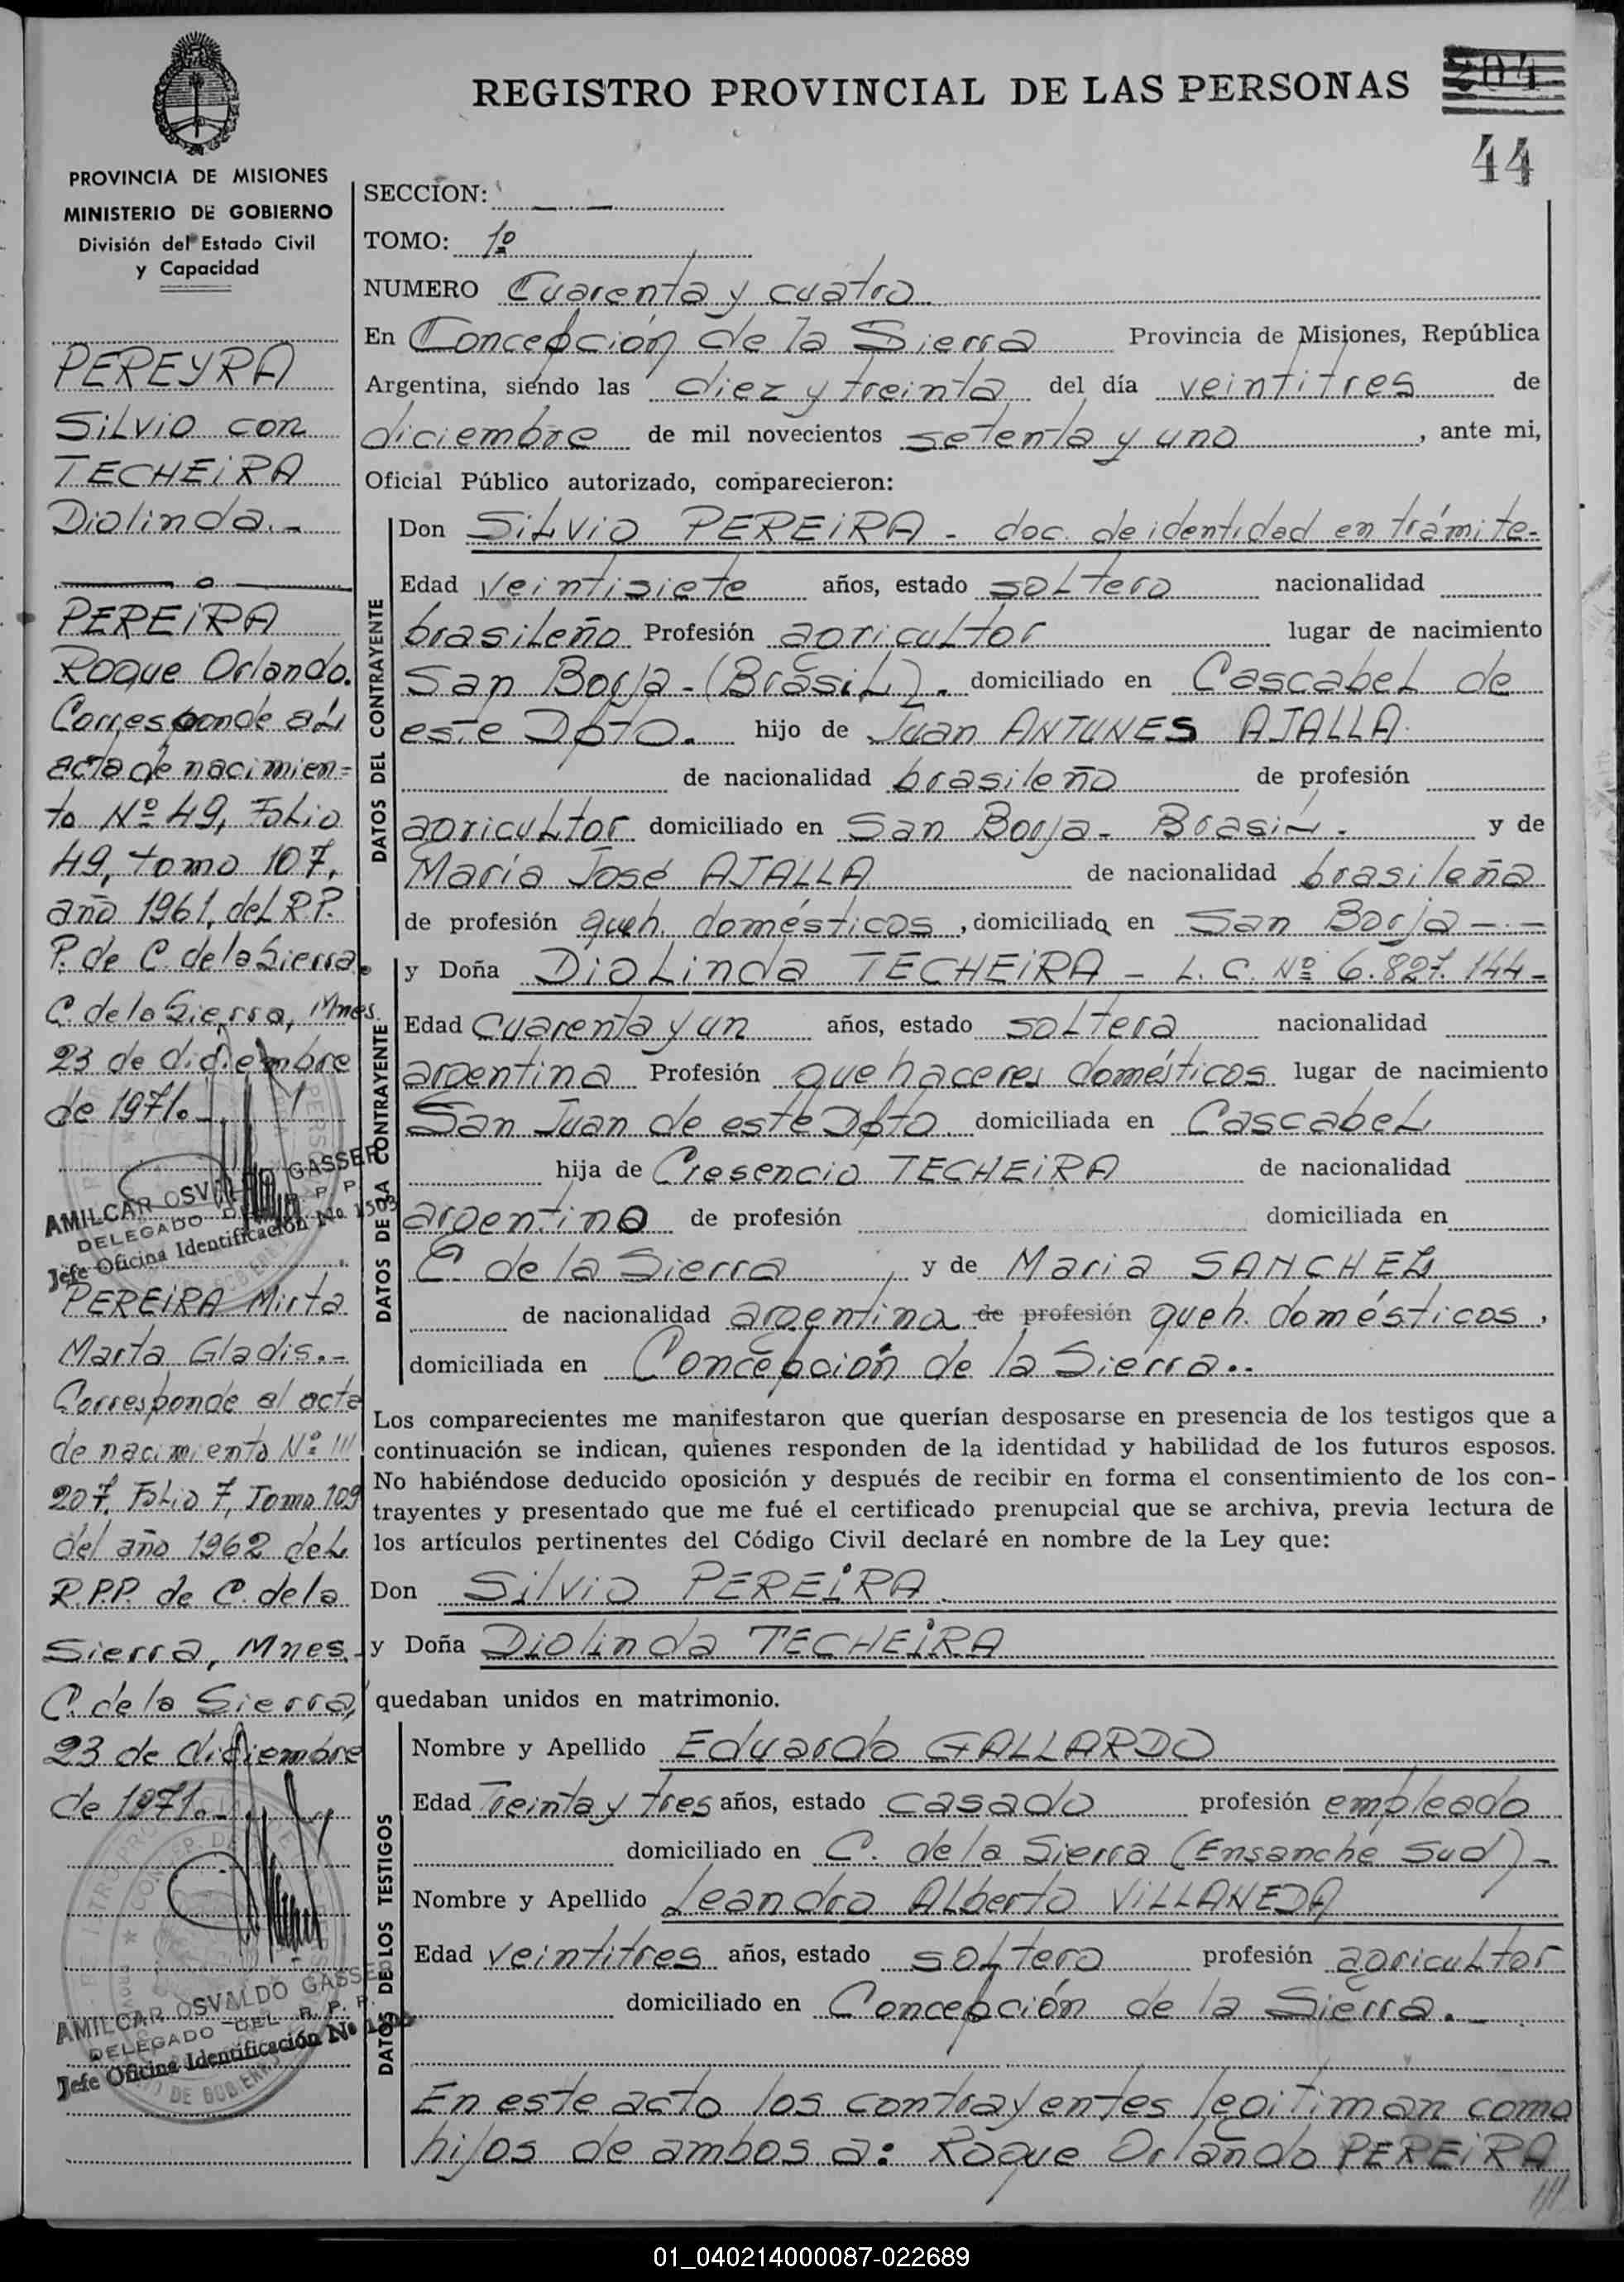 REGISTRO PROVINCIAL DE LAS PERSONAS
204
44
PROVINCIA DE MISIONES
MINISTERIO DE GOBIERNO
División del Estado Civil
y Capacidad
PEREYRA
Silvio con
TECHEIRA
Diolinda.-
o
PEREIRA
Roque Orlando.
Corresponde al
acta de nacimien=
to Nº 49, Folio
49, tomo 107,
año 1961, del R.P.
P. de C. de la Sierra.
C. de la Sierra, Mnes.
23 de diciembre
de 1971.-
AMILCAR OSVALDO GASSER
DELEGADO DEL R. P. P.
Jefe Oficina Identificación No. 1503
PEREIRA Mirta
Marta Gladis.-
Corresponde al acta
de nacimiento Nº ///
207, Folio 7, Tomo 109
del año 1962 del
R.P.P. de C. de la
Sierra, Mnes.
C. de la Sierra,
23 de diciembre
de 1971.-
AMILCAR OSVALDO GASSER
DELEGADO DEL R. P. P.
Jefe Oficina Identificación Nº
SECCION: - -
TOMO: 1º
NUMERO Cuarenta y cuatro
En Concepción de la Sierra Provincia de Misiones, República
Argentina, siendo las diez y treinta del día veintitres de
diciembre de mil novecientos setenta y uno, ante mi,
Oficial Público autorizado, comparecieron:
DATOS DEL CONTRAYENTE
Don Silvio PEREIRA - doc. de identidad en trámite-
Edad veintisiete años, estado soltero nacionalidad
brasileño Profesión agricultor lugar de nacimiento
San Borja - (Brasil). domiciliado en Cascabel de
este Dpto. hijo de Juan ANTUNES AJALLA
de nacionalidad brasileño de profesión
agricultor domiciliado en San Borja - Brasil. y de
María José AJALLA de nacionalidad brasileña
de profesión queh. domésticos, domiciliada en San Borja -.-
DATOS DE LA CONTRAYENTE
y Doña Diolinda TECHEIRA - L. C. Nº 6.827.144-
Edad Cuarenta y un años, estado soltera nacionalidad
argentina Profesión quehaceres domésticos lugar de nacimiento
San Juan de este Dpto. domiciliada en Cascabel
hija de Cresencio TECHEIRA de nacionalidad
argentino de profesión domiciliada en
C. de la Sierra, y de Maria SANCHEZ
de nacionalidad argentina de profesión queh. domésticos,
domiciliada en Concepción de la Sierra.-
Los comparecientes me manifestaron que querían desposarse en presencia de los testigos que a
continuación se indican, quienes responden de la identidad y habilidad de los futuros esposos.
No habiéndose deducido oposición y después de recibir en forma el consentimiento de los con-
trayentes y presentado que me fué el certificado prenupcial que se archiva, previa lectura de
los artículos pertinentes del Código Civil declaré en nombre de la Ley que:
Don Silvio PEREIRA
y Doña Diolinda TECHEIRA
quedaban unidos en matrimonio.
DATOS DE LOS TESTIGOS
Nombre y Apellido Eduardo GALLARDO
Edad Treinta y tres años, estado casado profesión empleado
domiciliado en C. de la Sierra (Ensanche Sud)-
Nombre y Apellido Leandro Alberto VILLANEDA
Edad veintitres años, estado soltero profesión agricultor
domiciliado en Concepción de la Sierra.-
En este acto los contrayentes legitiman como
hijos de ambos a: Roque Orlando PEREIRA
///
01_040214000087-022689